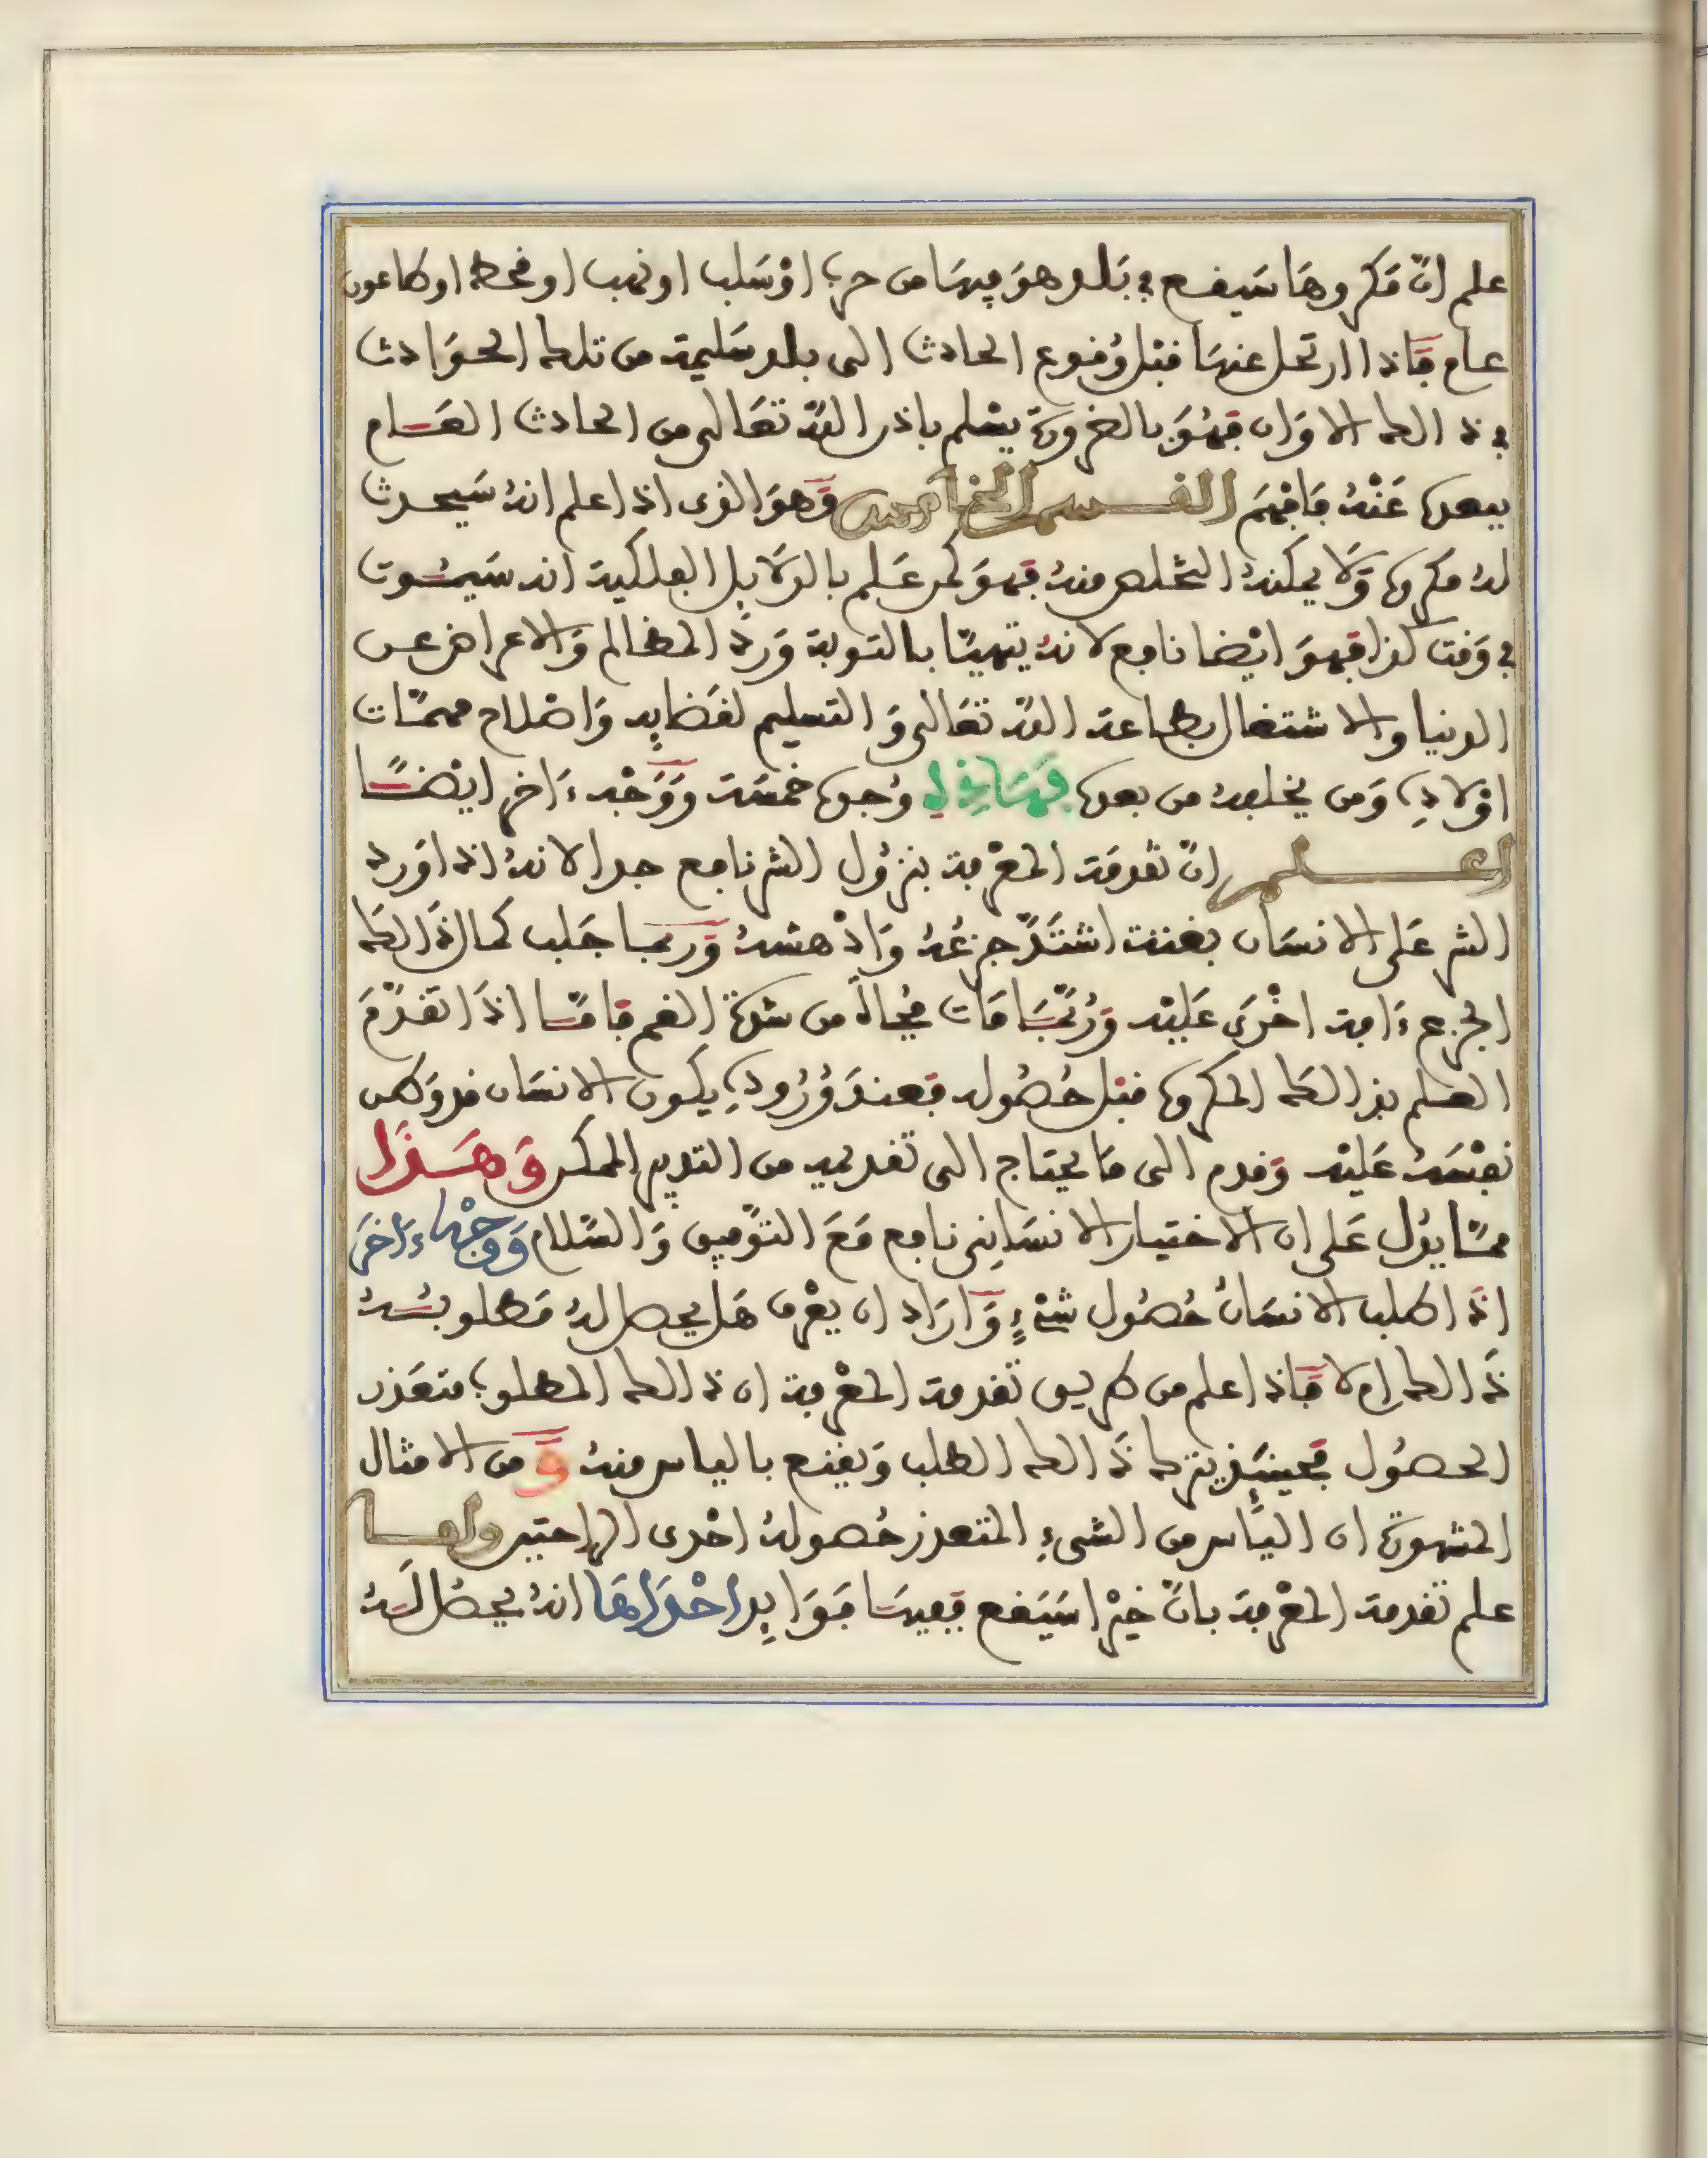 علم انّ مَكروهَا سَيقع في بَلد هوَ فيهَا من حرب اوْ سَلب او نهب او قحط او طاعون
عام فَاذا ارتحل عنهَا قبْل وُقوع الحادث الى بلد سَليمة من تلك الحوَادث
في ذالك الاوَان فهُوَ بالضرورة يسْلم باذن اللّه تعَالى من الحادث العَام
ببعده عَنْهُ فَافهَم القسم الخامس وَهوَ الذى اذا علم انهُ سَيحدث
لهُ مكروه وَلَا يمكنهُ التخلص منهُ فهوَ كمن عَلم بالدلَايل الفلكية انه سَيمُوت
في وَقت كذا فهوَ ايْضا نافع لانهُ يتهيّا بالتوبة وَردّ المظالم وَالاعراض عن
الدنيا والاشتغال بطاعة اللّه تعَالى وَالتسليم لقضَايِه وَاصْلاح مهمّات
اوْلادِه وَمن يخلفهُ من بعده فهَاذِهِ وُجوه خمسَة وَوَجْه ءَاخر ايْضًا
اعلم انّ تقدمَة المعْرفة بنزُول الشر نافع جدا لانهُ اذا وَرد
الشر عَلى الانسَان بغتة اشتَدّ جزعُهُ وَادْهشهُ وَربما جَلب كمَال ذَالك
الجزع ءَافة اخْرَى عَليْه وَرُبّمَا مَات فُجاةً من شدّة الغم فامّا اذَا تقدّمَ
العلم بذالكَ المكروه قبْل حُصُوله فعندَ وُرُودِه يكون الانسَان قد وَطن
نفْسَهُ عَليْه وَقدم الى مَا يحتاج الى تقديمه من التدبير الممكن وَهَذَا
ممّا يدُل عَلى ان الاختيار الانسَانِى نافع مَعَ التوْفيق وَالسّلام وَوَجْهاءَاخرَ
اذَا طلب الانسَانُ حُصُول شيْءٍ وَارَاد ان يعْرف هَل يحصل لهُ مَطلوبُهُ
ذَالك ام لا فَاذا علم من طريق تقدمة المعْرفة ان ذالك المطلوب متعَذر
الحصُول فحينيذٍ يترك ذَالك الطلب وَيقنع بالياس منهُ وَ من الامثال
المشهورة ان اليَأس من الشىءِ المتعذر حُصولهُ احْدى الراحتين واما
علم تقدمة المعْرفة بانّ خيْرا سَيَقع ففيهَا فوَايِد احْدَاهَا انهُ يحصُل لَهُ